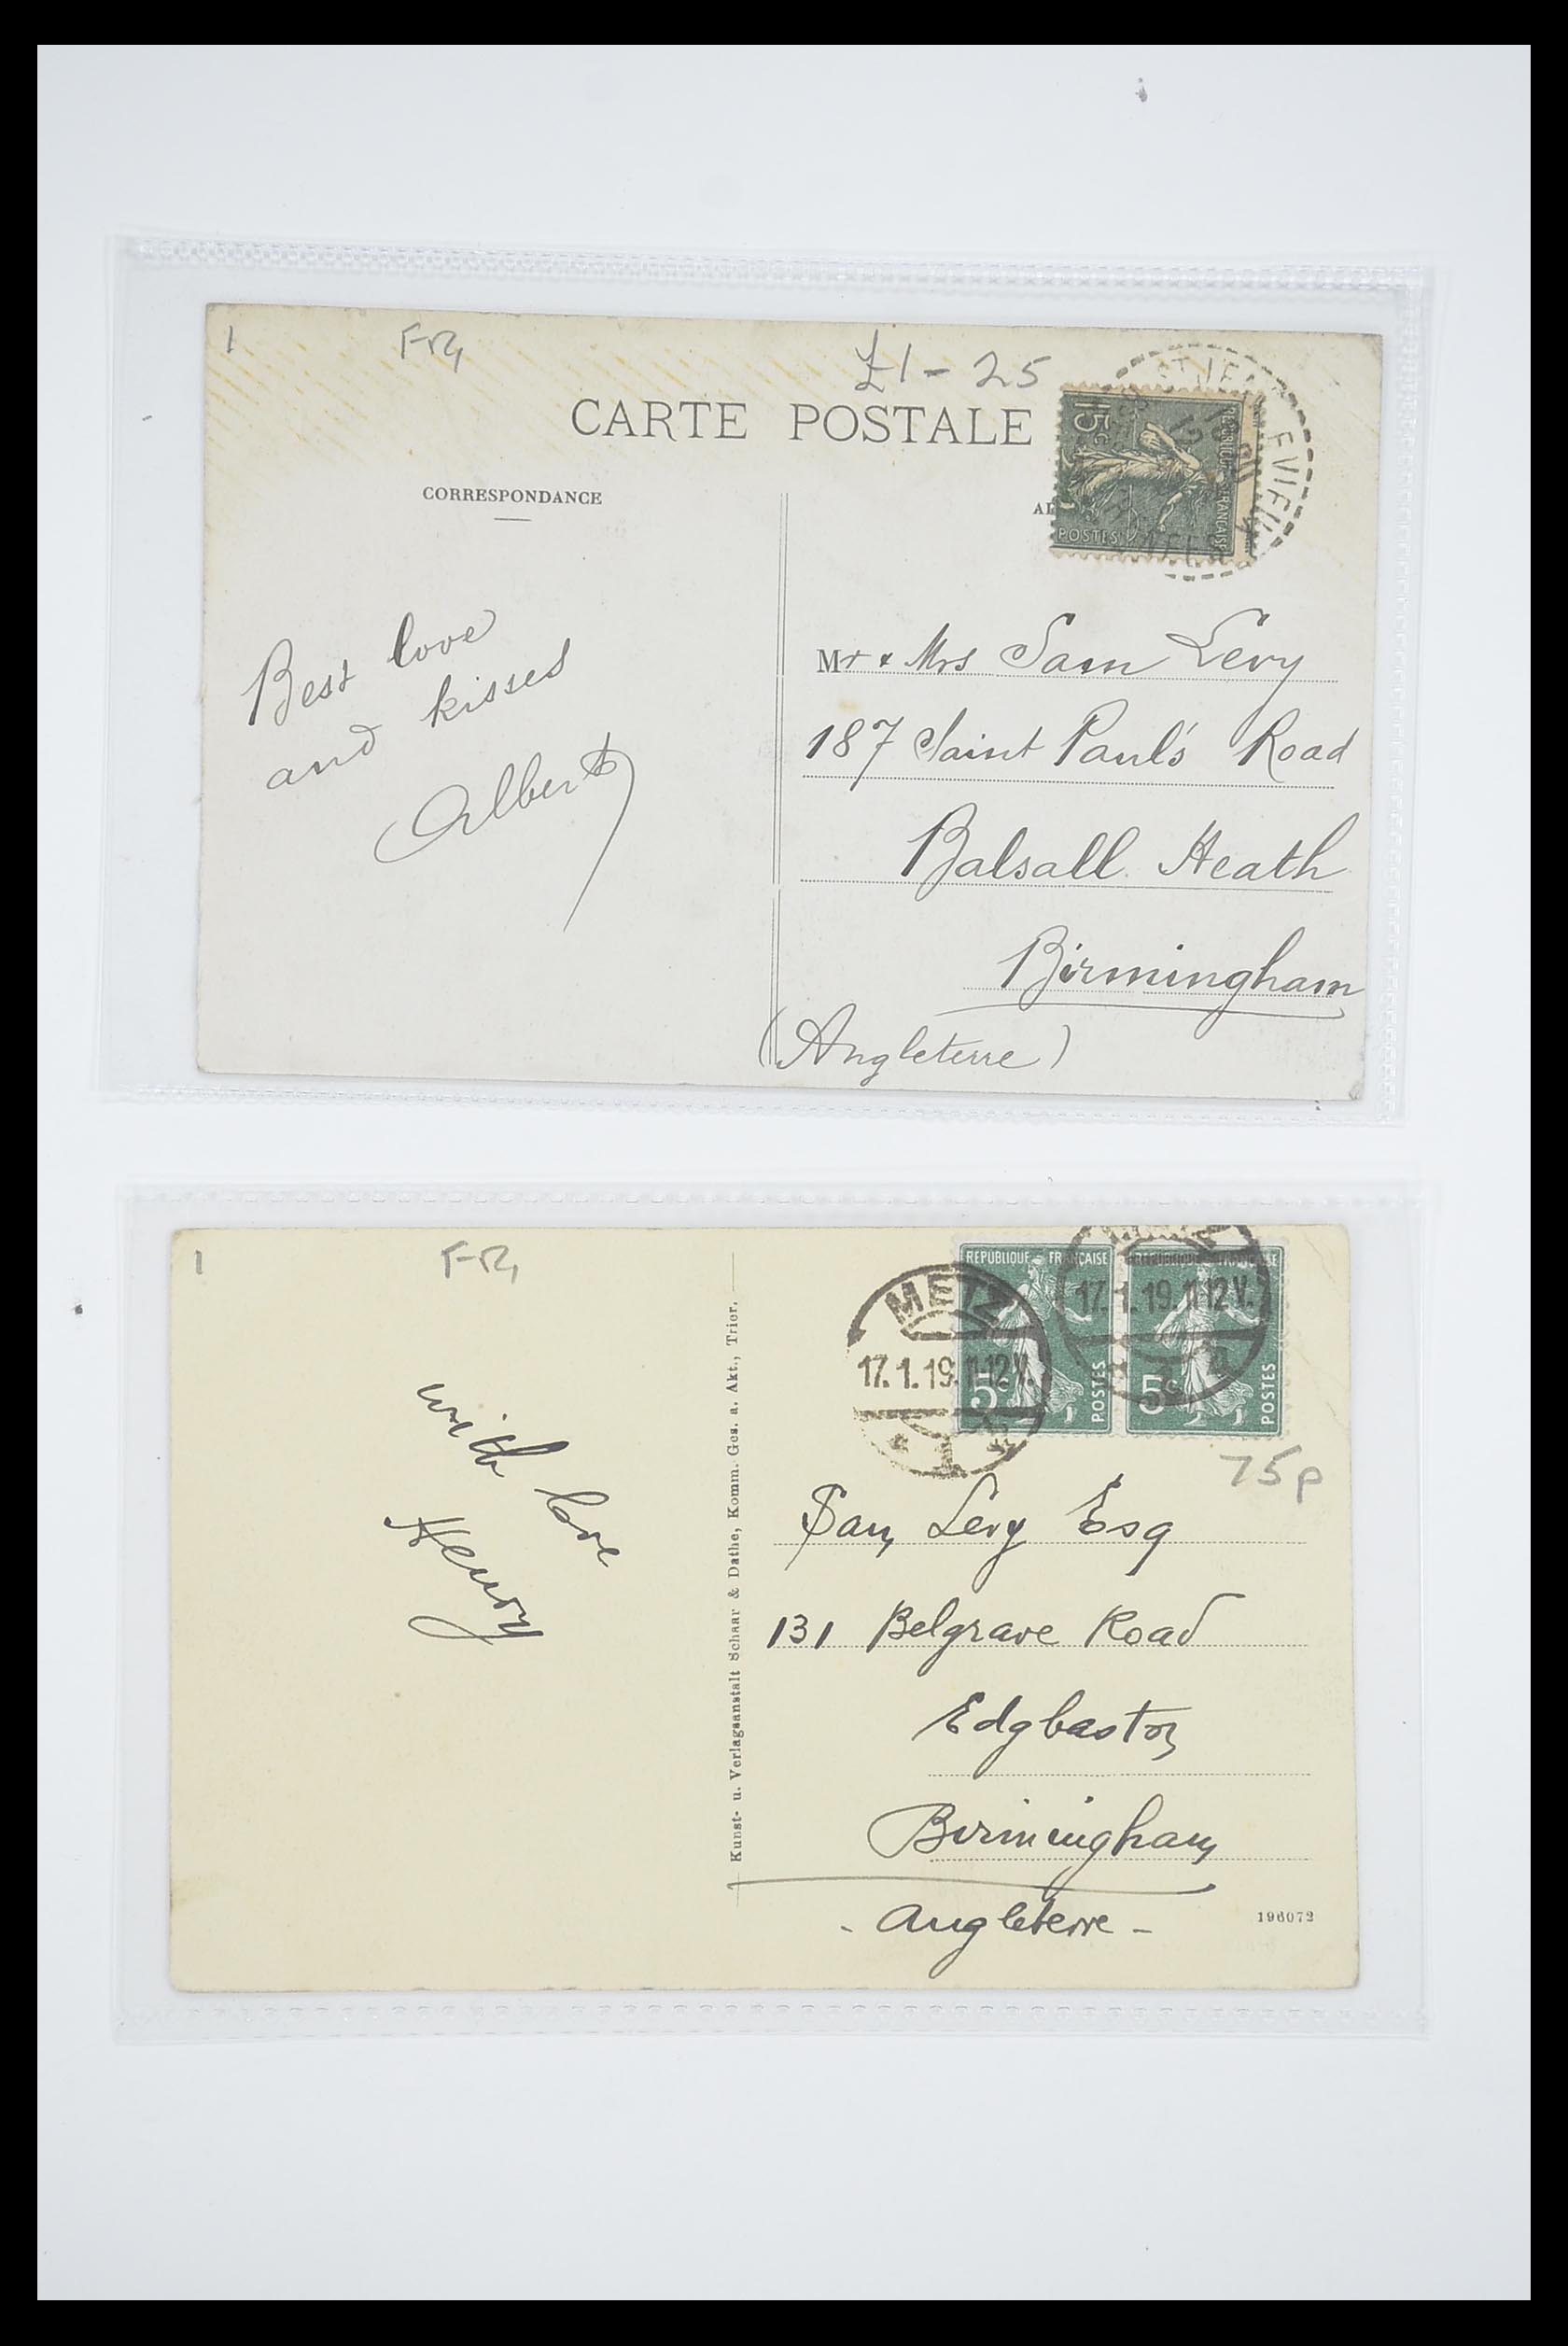 1
£1-25
CARTE POSTALE
CORRESPONDANCE
15c
POSTES
Best love
and kisses
Albert
Mr & Mrs Sam Levy
187 Saint Paul's Road
Balsall Heath
Birmingham
(Angleterre)
1
REPUBLIQUE FRANÇAISE
5c
POSTES
5c
POSTES
METZ
17.1.19.11-12V.
17.1.19.11-12V.
75p
with love
Henry
Kunst- u. Verlagsanstalt Schaar & Dathe, Komm. Ges. a. Akt., Trier.
Sam Levy Esq
131 Belgrave Road
Edgbaston
Birmingham
- Angleterre -
196072